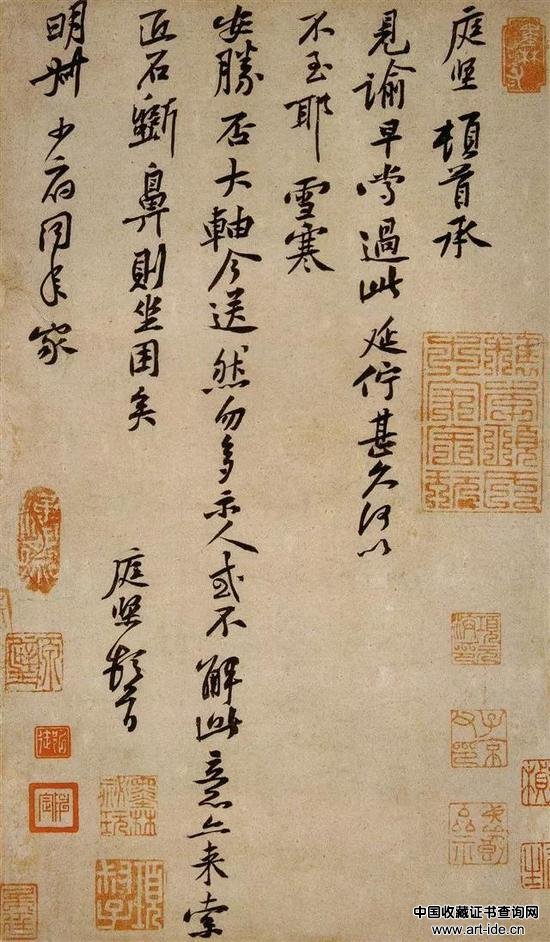 庭坚頓首承
見諭早嘗過此延佇甚久何以
不至耶雪寒
安勝否大軸今送然勿多示人或不解此意亦来索
匠石斲鼻則坐困矣
庭坚頓首
明州少府同年家
墨林秘玩
子京父印
中国收藏证书查询网
www.art-ide.cn